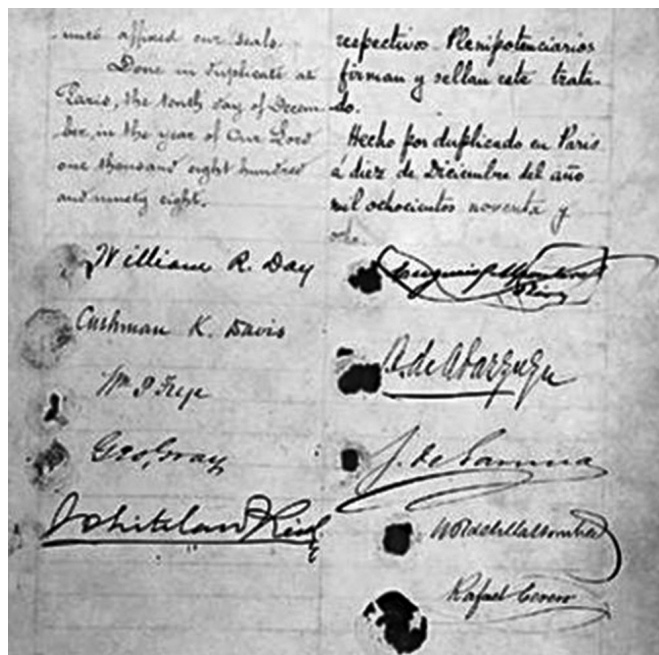 affixed our seals.
Done in duplicate at
Paris, the tenth day of Decem-
ber, in the year of Our Lord
one thousand eight hundred
and ninety eight.
William R. Day
Cushman K. Davis
Wm P. Frye
Geo, Gray
Whitelaw Reid
respectivos Plenipotenciarios
firman y sellan este trata-
do.
Hecho por duplicado en Paris
á diez de Diciembre del año
mil ochocientos noventa y
ocho.
B. de Abarzuza
J. de Garnica
Rafael Cerero